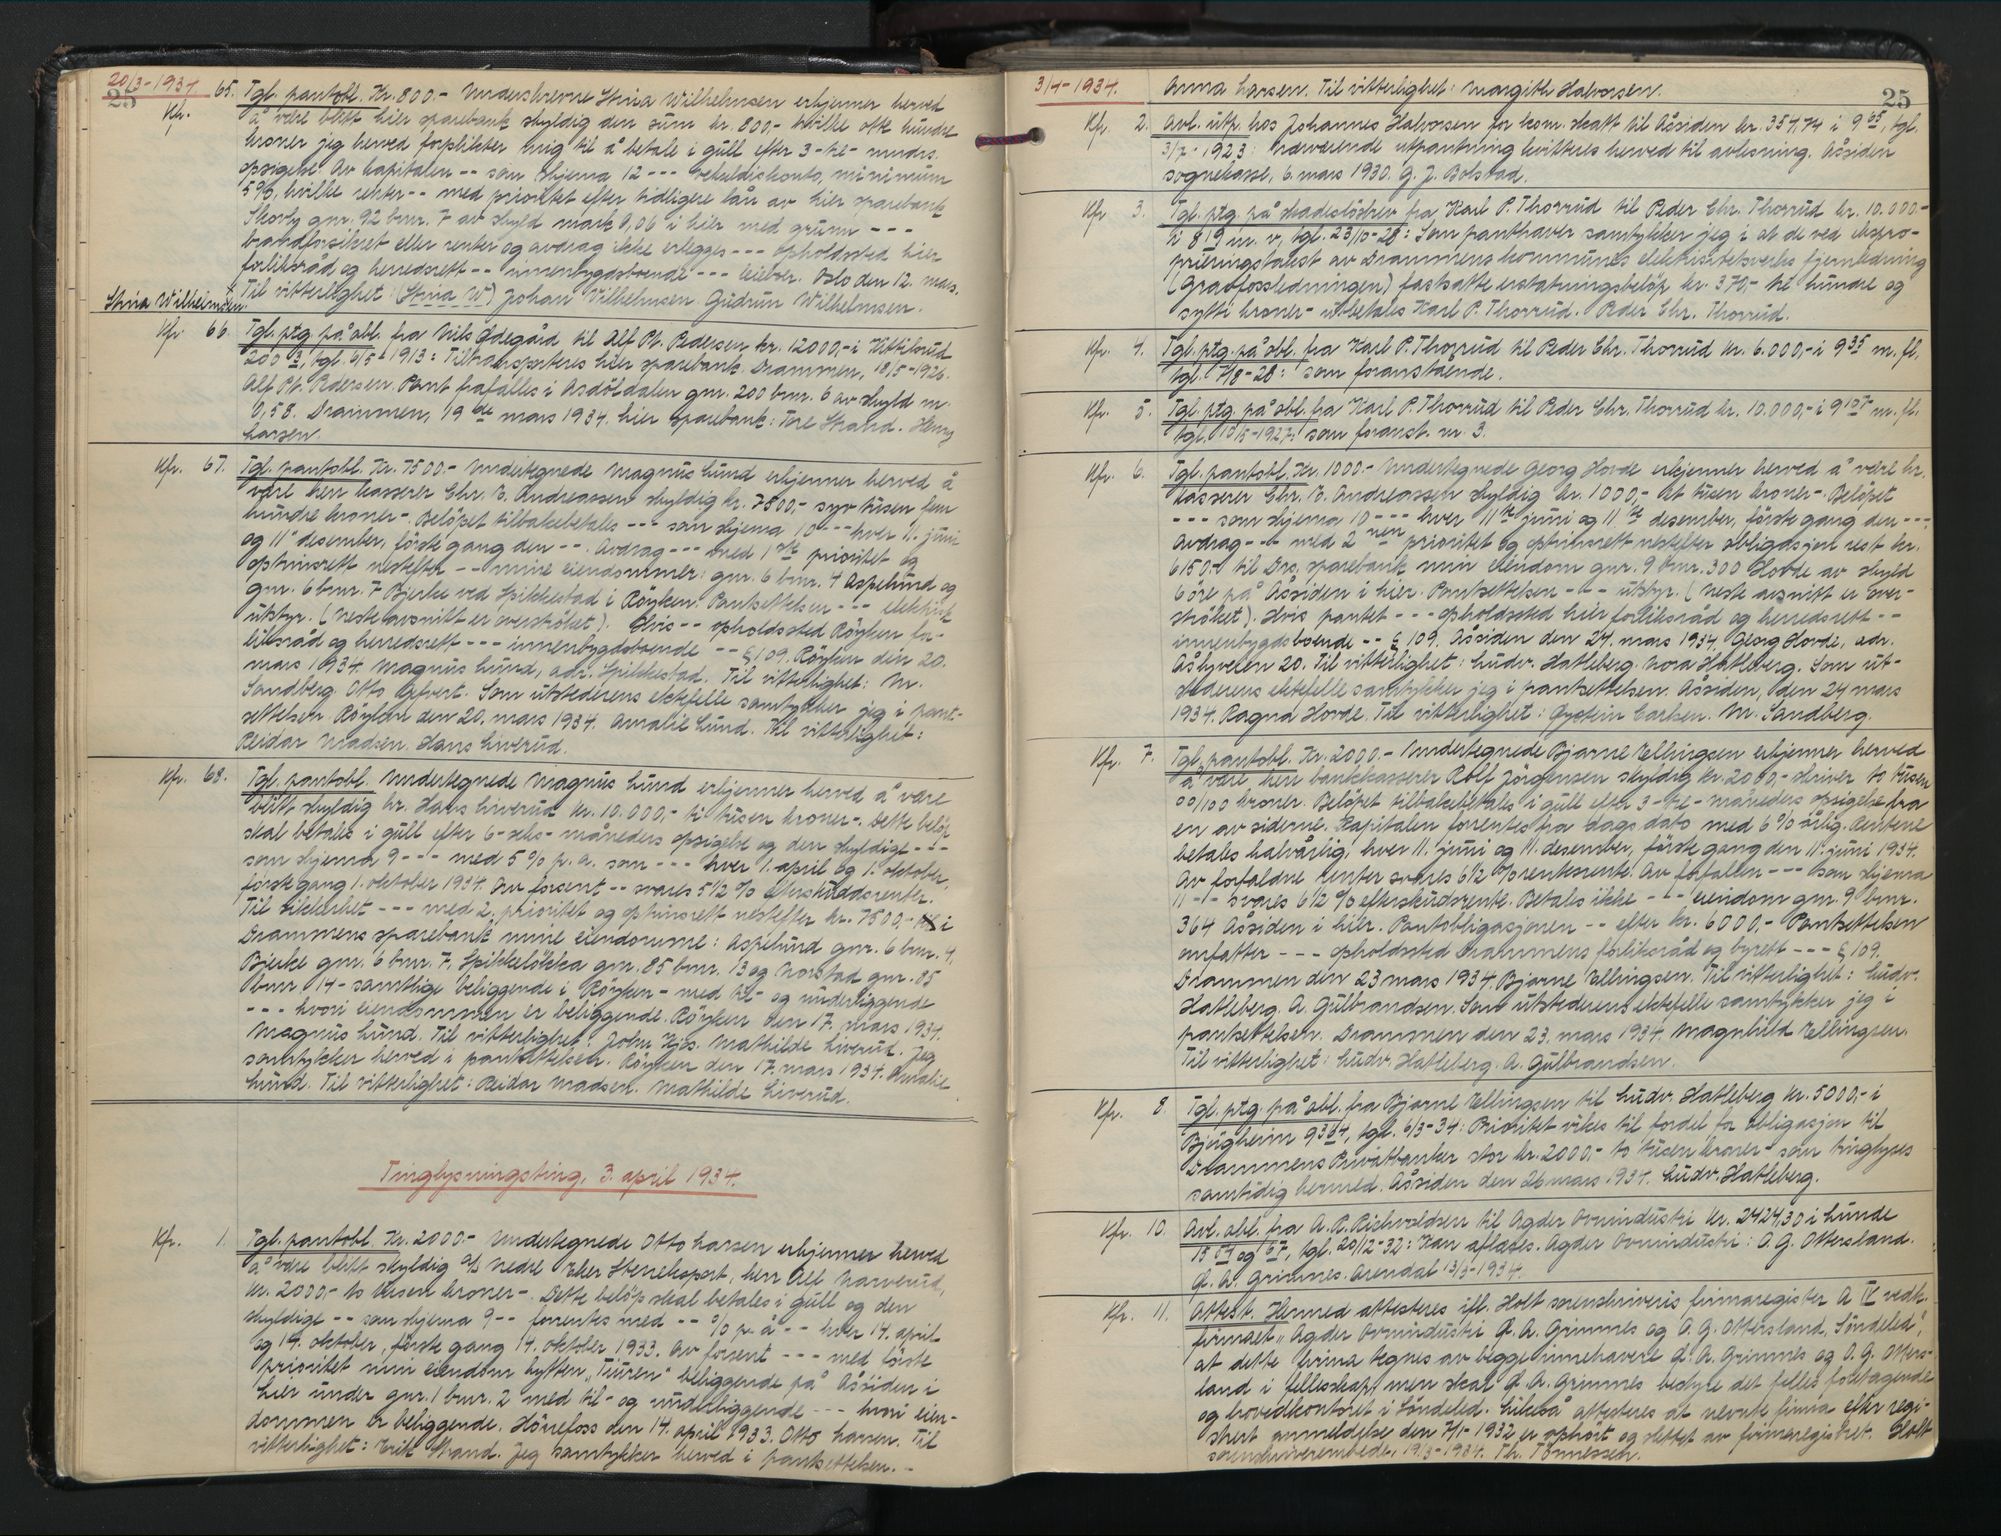 20/3-1934
25
Kfr. 65. Tgl. pantobl. Kr. 800.- Underskrevne Stina Wilhelmsen erkjenner herved
å være blitt hier sparebank skyldig den sum kr. 800,- hvilke otte hundre
kroner jeg herved forplikter mig til å betale i gull efter 3-tre- mndrs.
opsigelse. Av kapitalen -- som skjema 12 --- vekseldiskonto, minimum
5%, hvilke renter -- med prioritet efter tidligere lån av hier sparebank
Skovly gnr. 92 bnr. 7 av skyld mark 0,06 i hier med grunn ---
brandforsikret eller renter og avdrag ikke erlegges --- opholdssted hier
forliksråd og herredsrett -- innenbygdsboende --- eieber. Oslo den 12. mars.
Stina Wilhelmsen. Til vitterlighet: (Stina W) Johan Wilhelmsen Gudrun Wilhelmsen.
Kfr. 66. Tgl. ptg. på obl. fra Nils Ødegård til Alf M. Pedersen kr. 12000,- i Kittilsrud
200 3, tgl. 6/5-1913: Tiltransporteres hier sparebank. Drammen, 18/5-1926.
Alf M. Pedersen. Pant frafalles i Asdöldalen gnr. 200 bnr. 6 av skyld m.
0,58. Drammen, 19de mars 1934. hier sparebank: Tore Strand. Henry
Larsen.
Kfr. 67. Tgl. pantobl. Kr. 7500.- Undertegnede Magnus Lund erkjenner herved å
være herr kasserer Chr. E. Andreassen skyldig kr. 7500,- syv tusen fem
hundre kroner-. Beløpet tilbakebetales --- som skjema 10 --- hver 11. juni
og 11. desember, første gang den --. Avdrag --- med 1ste prioritet og
optrinsrett nestefter -- mine eiendommer: gnr. 6 bnr. 4 Aspelund og
gnr. 6 bnr. 7 Bjerke ved Spikkestad i Röyken. Pantsettelsen --- elektrisk
utstyr. (neste avsnitt er overstrøket). Hvis -- opholdssted Röyken for-
liksråd og herredsrett --- innenbygdsboende -- § 109. Röyken den 20.
mars 1934. Magnus Lund, adr. Spikkestad. Til vitterlighet: M.
Sandberg. Otto Gefvert. Som utstederens ektefelle samtykker jeg i pant-
settelsen. Röyken den 20. mars 1934. Amalie Lund. Til vitterlighet:
Reidar Madsen. Hans Liverud.
Kfr. 68. Tgl. pantobl. Undertegnede Magnus Lund erkjenner herved å være
blitt skyldig hr. Hans Liverud kr. 10.000,- ti tusen kroner-. Dette beløp
skal betales i gull efter 6-seks- måneders opsigelse og den skyldige ---
som skjema 9 --- med 5% p.a. som --- hver 1. april og 1. oktober,
første gang 1. oktober 1934. Av forsent -- svares 5 1/2 % efterskuddsrenter.
Til sikkerhet --- med 2. prioritet og optrinsrett nestefter kr. 7500,- i
Drammens sparebank mine eiendomme: Aspelund gnr. 6 bnr. 4,
Bjerke gnr. 6 bnr. 7, Spikkeløkka gnr. 85 bnr. 13 og Norstad gnr. 85
bnr 14- samtlige beliggende i Röyken - med til- og underliggende
--- hvori eiendommen er beliggende. Röyken den 17. mars 1934.
Magnus Lund. Til vitterlighet: John Kjos. Mathilde Liverud. Jeg
samtykker herved i pantsettelsen. Röyken den 17. mars 1934. Amalie
Lund. Til vitterlighet: Reidar Madsen. Mathilde Liverud.
Tinglysningsting, 3. april 1934.
Kfr. 1. Tgl. pantobl. Kr. 2000.- Undertegnede Otto Larsen erkjenner herved
å være blitt skyldig A/S Nedre Eker Steneksport, herr Alf Narverud,
kr. 2000,- to tusen kroner-. Dette beløp skal betales i gull og den
skyldige -- som skjema 9 -- forrentes med -- % p. å --- hver 14. april
og 14. oktober, første gang 14. oktober 1933. Av forsent --- med første
prioritet min eiendom hytten "Tiuren" beliggende på Åssiden i
Lier under gnr. 1 bnr. 2 med til- og underliggende --- hvori eien-
dommen er beliggende. Hönefoss den 14. april 1933. Otto Larsen. Til
vitterlighet: Erik Strand. Jeg samtykker herved i pantsettelsen.-
3/4-1934.
25
Anna Larsen. Til vitterlighet: Margith Halvorsen.
Kfr. 2. Avl. utp. hos Johannes Halvorsen for kom. skatt til Åssiden kr. 354,74 i 9 65, tgl.
3/7-1923: nærværende utpantning kvitteres herved til avlesning. Åssiden
sognekasse, 6. mars 1930. G. J. Bolstad.
Kfr 3. Tgl. ptg. på skadesløsbrev fra Karl P. Thorrud til Peder Chr. Thorrud kr. 10.000.-
i 8 9 m. v, tgl. 23/10-28: Som panthaver samtykker jeg i at de ved ekspro-
prieringstakst av Drammens kommunes elektrisitetsverks fjernledning
(Gravfossledningen) fastsatte erstatningsbeløp kr. 370,- tre hundre og
sytti kroner- utbetales Karl P. Thorrud. Peder Chr. Thorrud.
Kfr. 4. Tgl. ptg. på obl. fra Karl P. Thorrud til Peder Chr. Thorrud kr. 6.000,- i 9 35 m. fl,
tgl. 7/8-28: som foranstående.
Kfr. 5. Tgl. ptg. på obl. fra Karl P. Thorrud til Peder Chr. Thorrud kr. 10.000,- i 9 107 m. fl.
tgl. 10/5-1927: som foranst. nr. 3.
Kfr. 6. Tgl. pantobl. Kr. 1000.- Undertegnede Georg Hovde erkjenner herved å være hr.
kasserer Chr. E. Andreassen skyldig kr. 1000,- ett tusen kroner-. Beløpet
--- som skjema 10 --- hver 11te juni og 11te desember, første gang den ---
Avdrag --- med 2nen prioritet og optrinsrett nestefter obligasjon rest kr.
6150.- til Drs. sparebank min eiendom gnr. 9 bnr. 300 Hovde av skyld
6 öre på Åssiden i hier. Pantsettelsen --- utstyr. (neste avsnitt er over-
strøket). Hvis pantet --- opholdssted hier forliksråd og herredsrett --
innenbygdsboende -- § 109. Åssiden den 24. mars 1934. Georg Hovde, adr.
Åskyveien 20. Til vitterlighet: Ludv. Hatleberg. Nora Hatleberg. Som ut-
stederens ektefelle samtykker jeg i pantsettelsen. Åssiden, den 24 mars
1934. Ragna Hovde. Til vitterlighet: Øystein Carlsen. M. Sandberg.
Kfr. 7. Tgl. pantobl. Kr. 2000,- Undertegnede Bjarne Ellingsen erkjenner herved
å være herr bankkasserer Rolf Jörgensen skyldig kr. 2000,- skriver to tusen
00/100 kroner. Beløpet tilbakebetales i gull efter 3-tre- måneders opsigelse fra
en av siderne. Kapitalen forrentes fra dags dato med 6% årlig. Rentene
betales halvårlig, hver 11. juni og 11. desember, første gang den 11. juni 1934.
Av forfaldne renter svares 6 1/2 % rentesrente. Av forfallen --- som skjema
11 --- svares 6 1/2 % efterskudsrente. Betales ikke --- eiendom gnr. 9 bnr.
364 Åssiden i hier. Pantobligasjonen -- efter kr. 6000,- Pantsettelsen
omfatter --- opholdssted Drammens forliksråd og byrett --- § 109.
Drammen den 23 mars 1934. Bjarne Ellingsen. Til vitterlighet: Ludv.
Hatleberg. A. Gulbrandsen. Som utstederens ektefelle samtykker jeg i
pantsettelsen. Drammen den 23. mars 1934. Magnhild Ellingsen.
Til vitterlighet: Ludv. Hatleberg. A. Gulbrandsen.
Kfr. 8. Tgl. ptg. på obl. fra Bjarne Ellingsen til Ludv. Hatleberg kr. 5000,- i
Bjørgheim 9 364, tgl. 6/3-34: Prioritet vikes til fordel for obligasjon til
Drammens Privatbanker stor kr. 2000.- to tusen kroner- som tinglyses
samtidig hermed. Åssiden den 26 mars 1934. Ludv. Hatleberg.
Kfr. 10. Avl. obl. fra A. P. Rishvoldsen til Agder Ovnindustri kr. 2424,30 i Lunde
15 54 og 67, tgl. 20/12-32: Kan aflæses. Agder Ovnindustri: O. G. Ottersland.
G. A. Grimnes. Arendal 13/3-1934.
Kfr. 11. Attest. Hermed attesteres ifl. Holt sorenskriveris firmaregister A IV vedk.
firmaet "Agder Ovnindustri G. A. Grimnes og O. G. Ottersland, Söndeled",
at dette firma tegnes av begge innehavere G. A. Grimnes og O. G. Otters-
land i fellesskap, men skal G. A. Grimnes bestyre det felles foretagende
og hovedkontoret i Söndeled. Likeså attesteres at nevnte firma efter regi-
strert anmeldelse den 7/1-1932 er ophört og slettet av firmaregistret. Holt
sorenskriverembede, 19/3-1934. Th. Tönnessen.